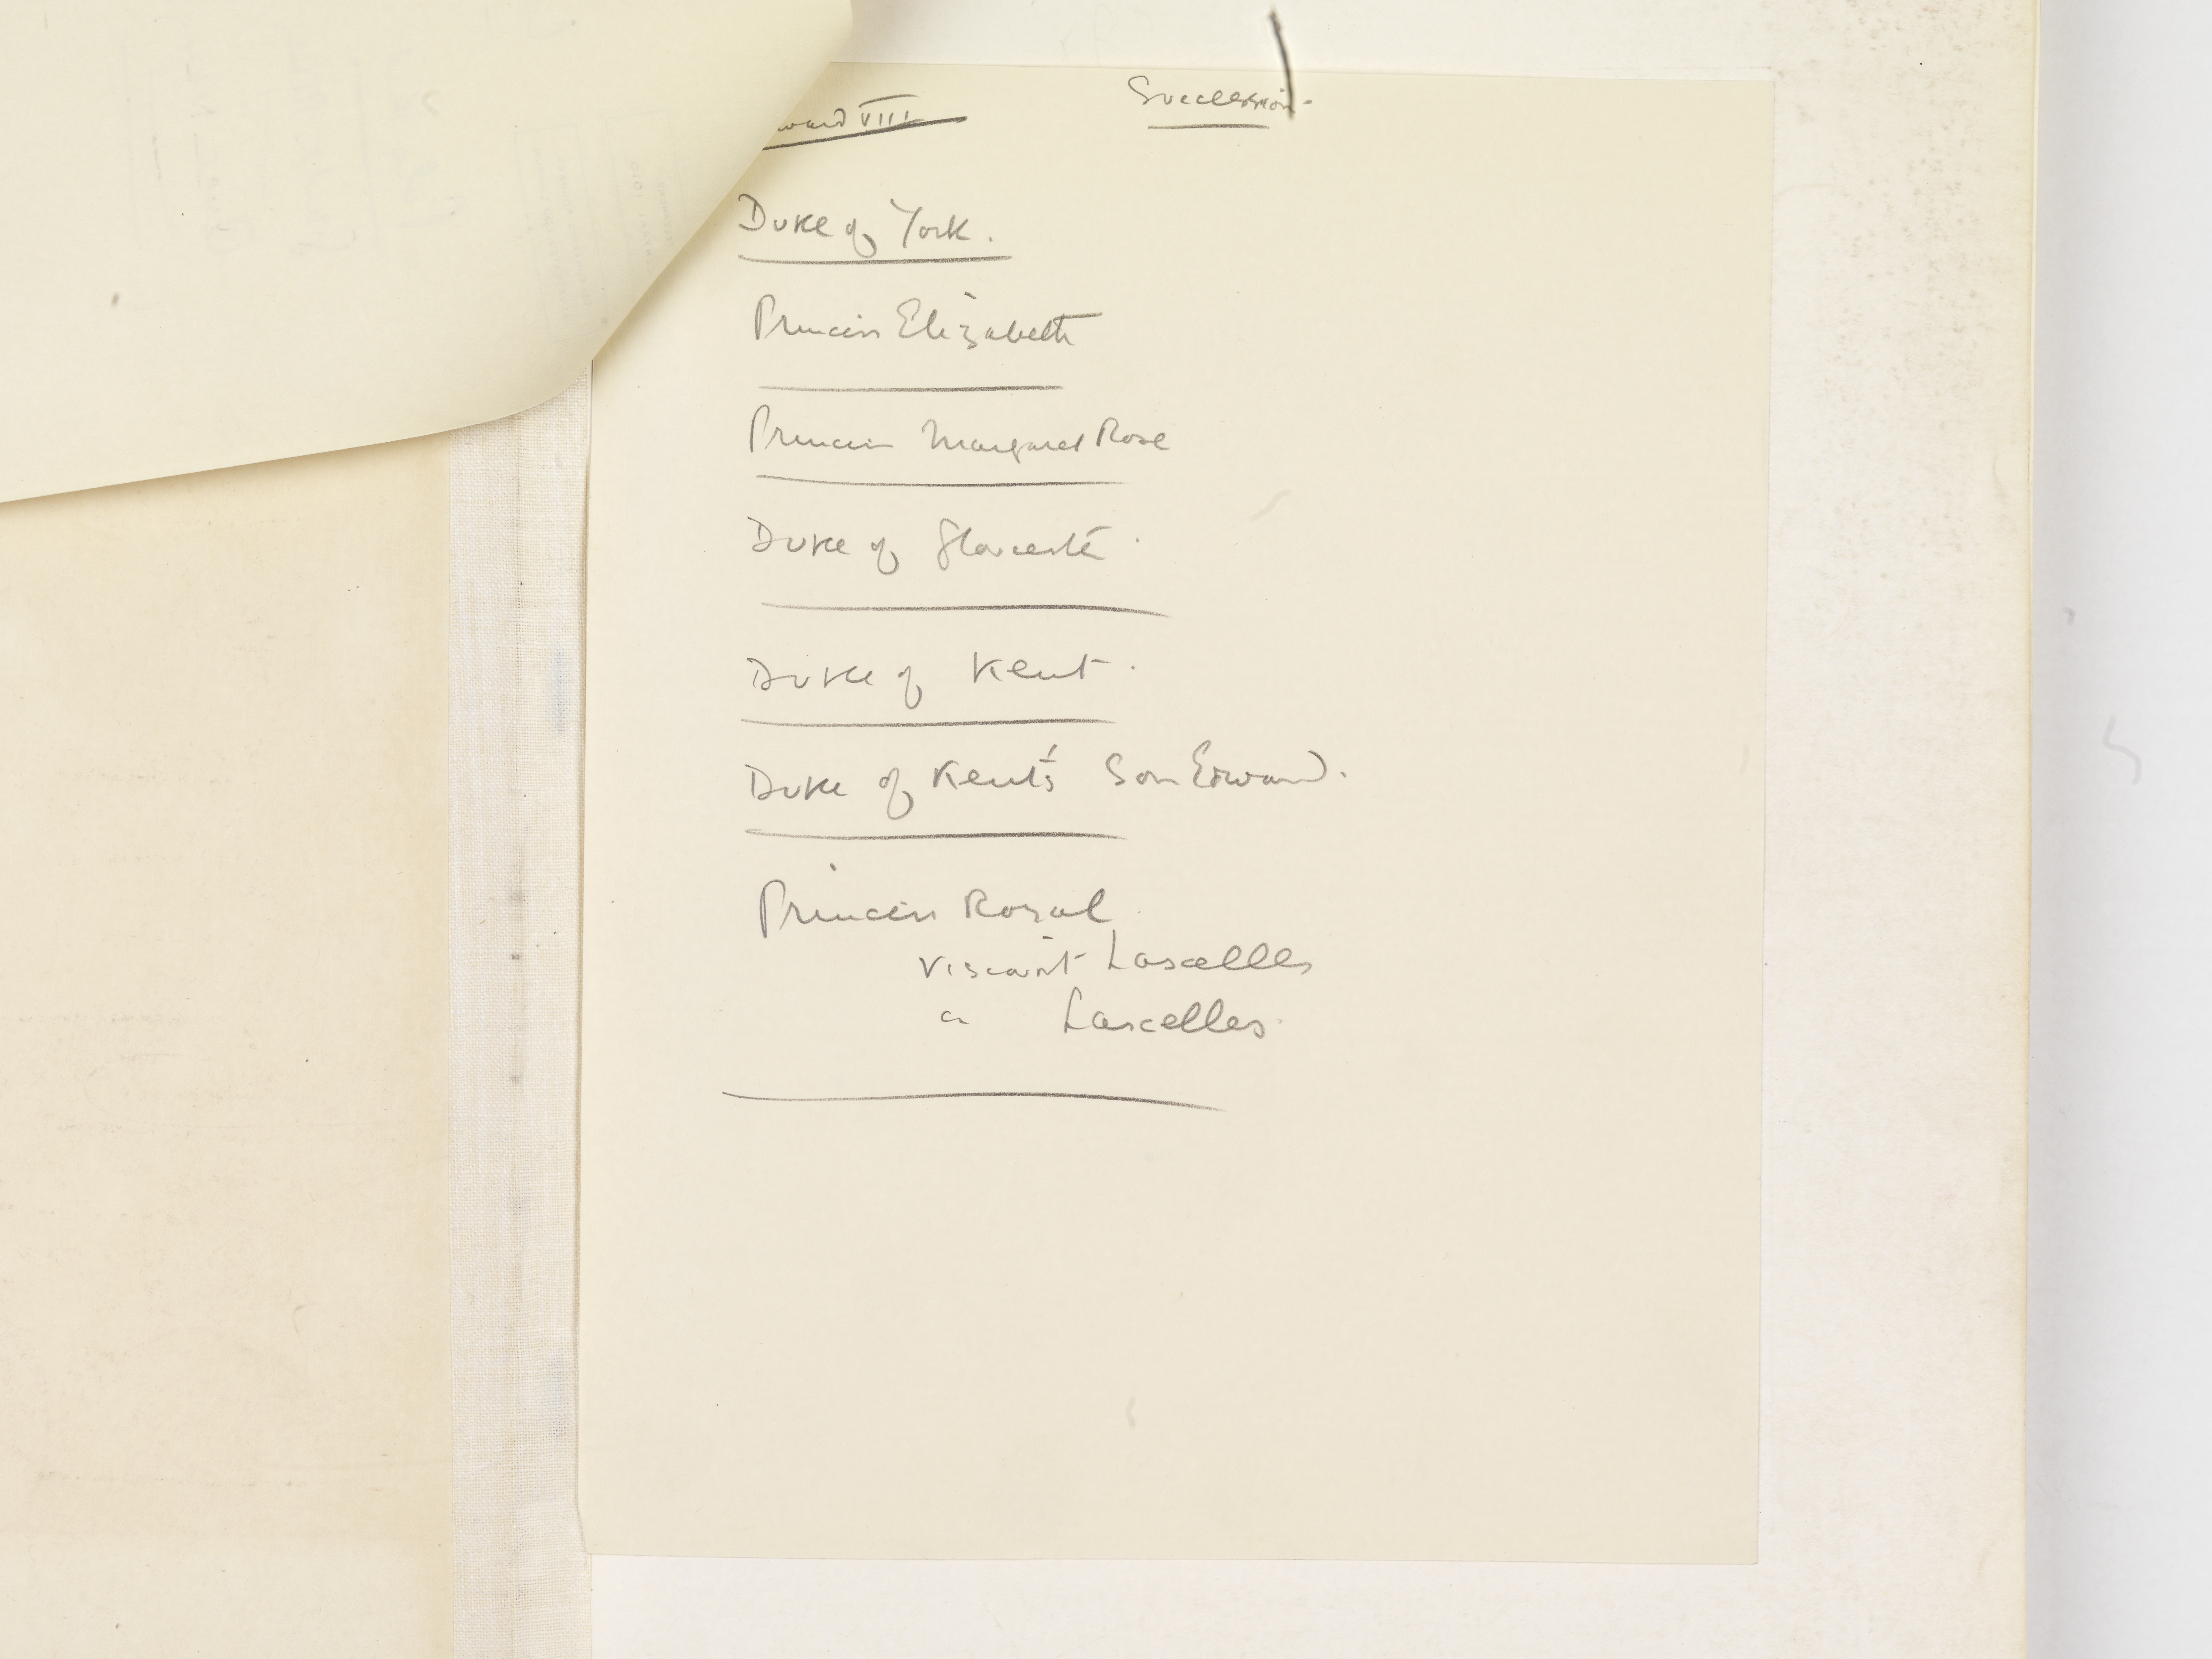 ward VIII Succession.
Duke of York.
Princess Elizabeth
Princess Margaret Rose
Duke of Gloucester.
Duke of Kent.
Duke of Kent's Son Edward.
Princess Royal
Viscount Lascelles
Lascelles.